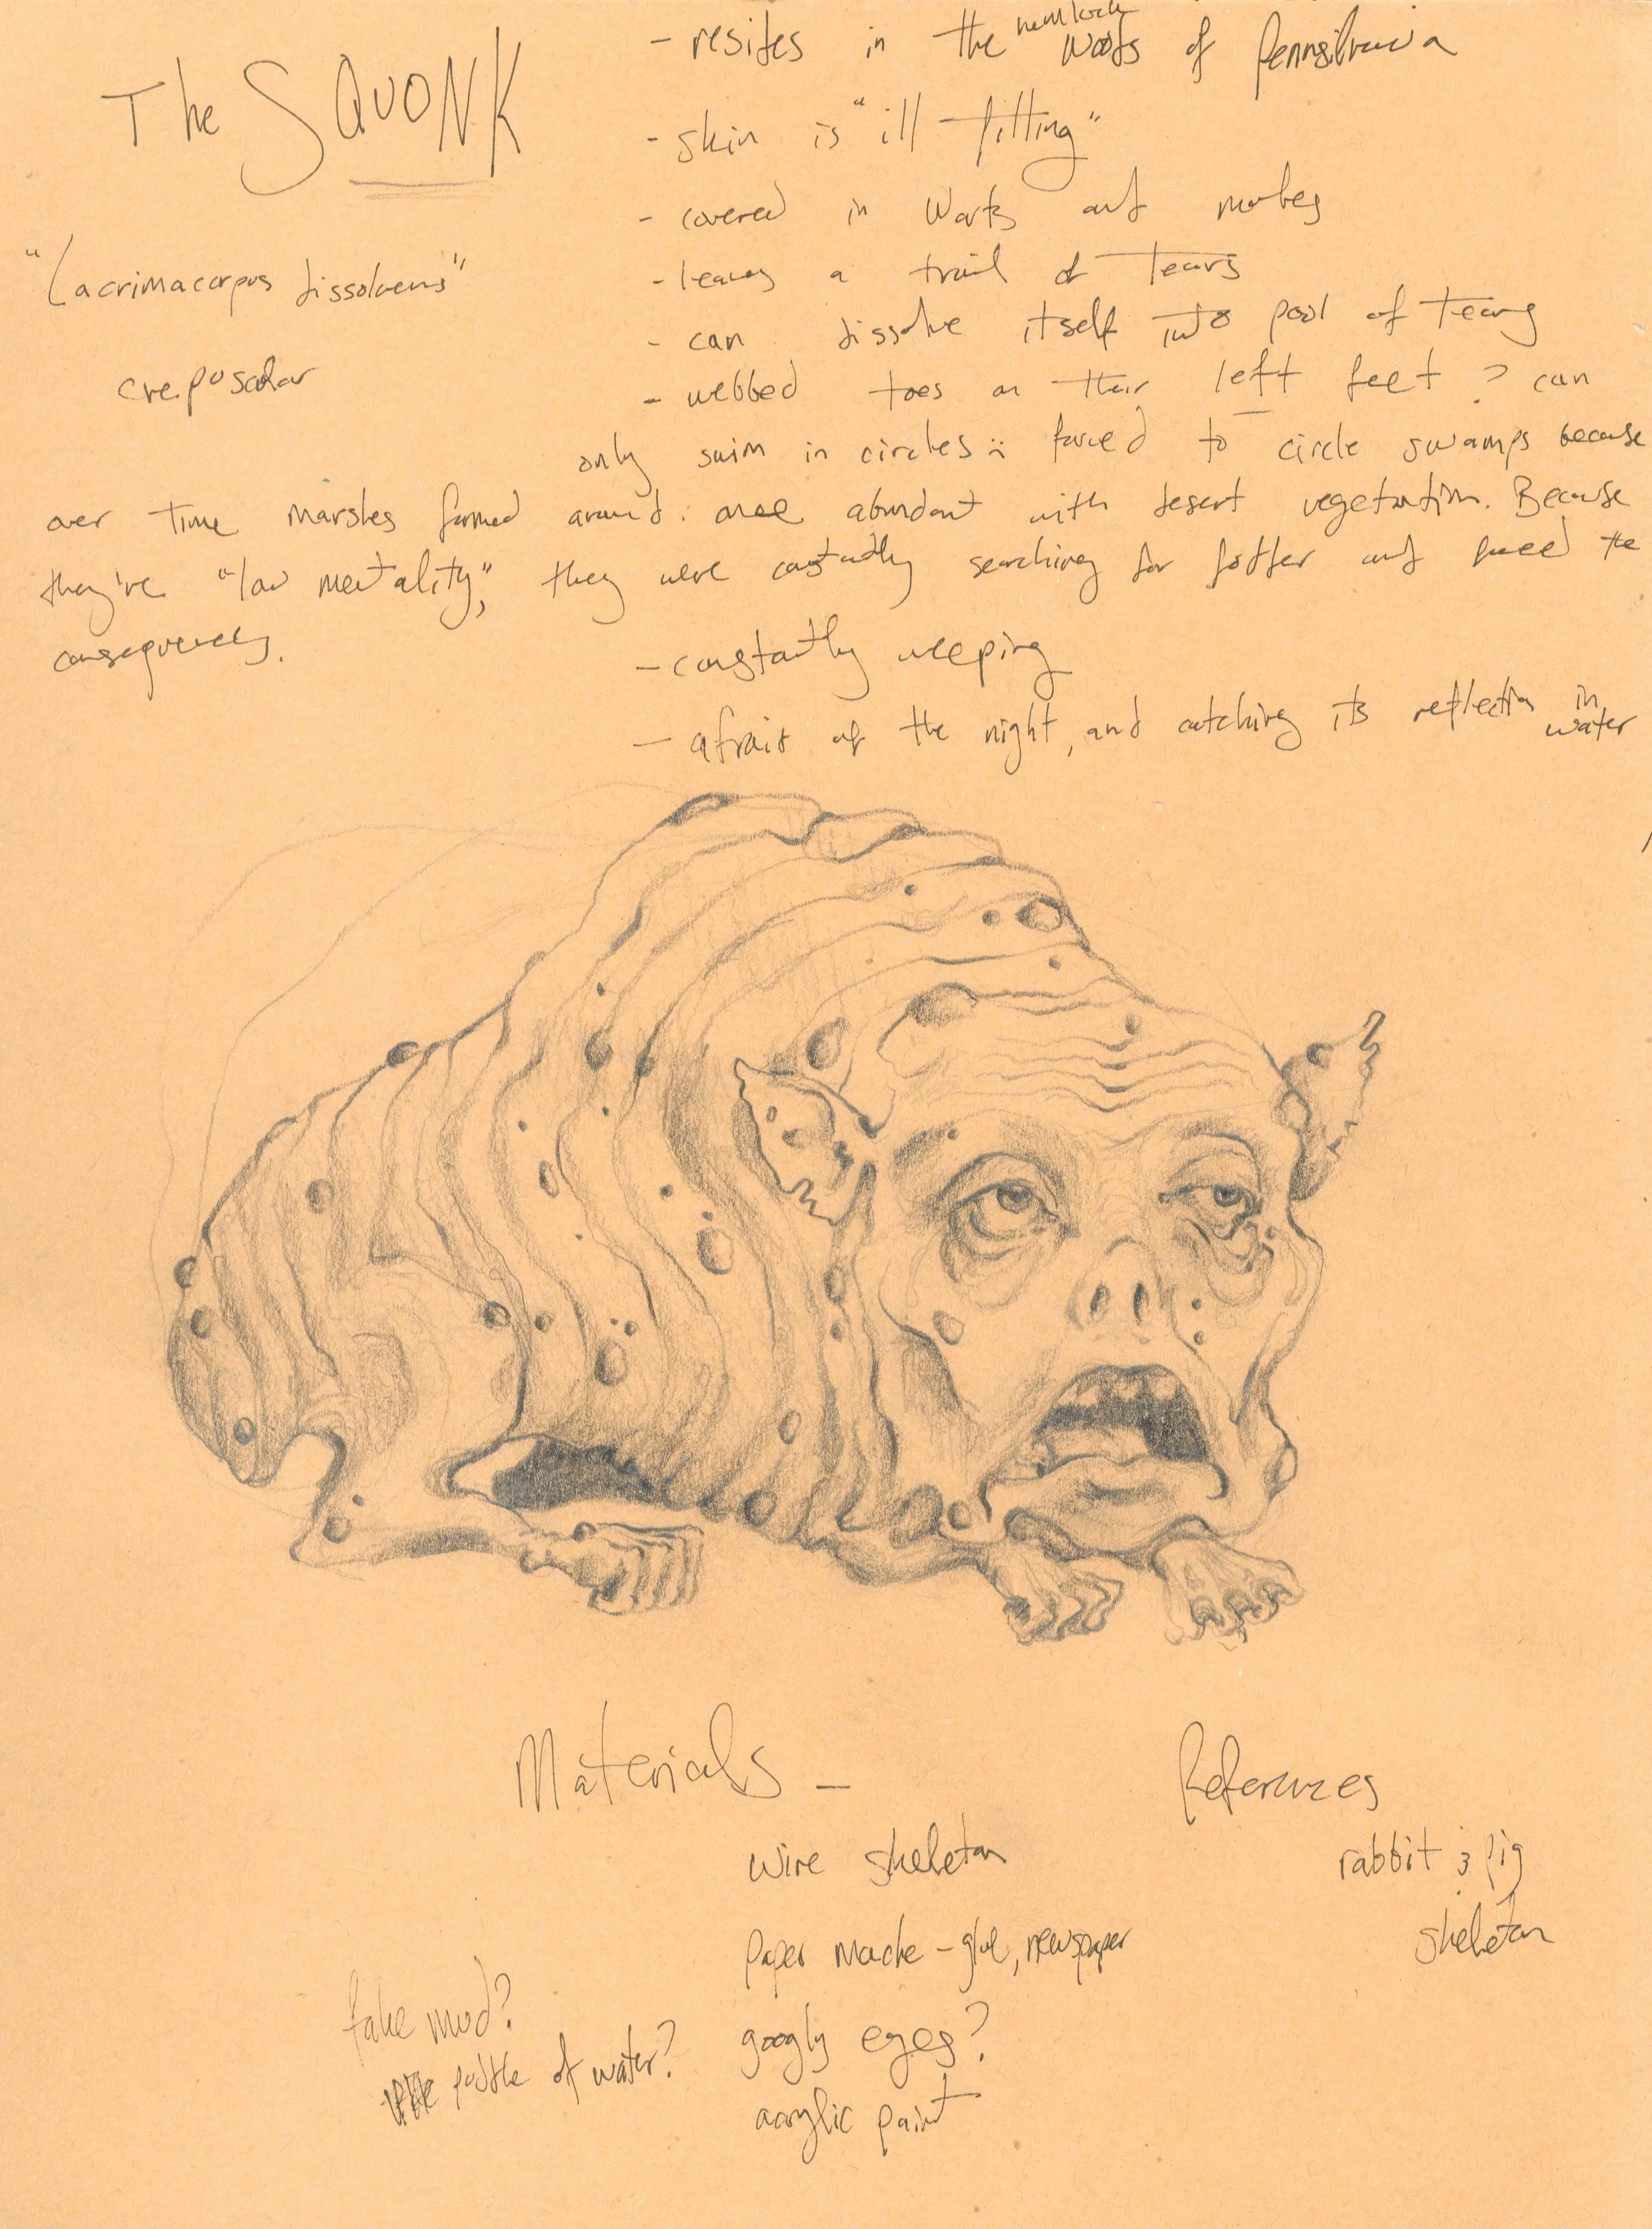 The SQUONK
"Lacrimacorpus dissolvens"
crepuscular
- resides in the hemlock woods of Pennsilvania
- skin is "ill-fitting"
- covered in warts and moles
- leaves a trail of tears
- can dissolve itself into pool of tears
- webbed toes on their left feet ? can
only swim in circles ∴ forced to circle swamps because
over time marshes formed around. once abundant with desert vegetation. Because
they're "low mentality", they were constantly searching for fodder and faced the
consequences.
- constantly weeping
- afraid of the night, and catching its reflection in water
Materials -
wire skeleton
paper mache - glue, newspaper
googly eyes?
acrylic paint
fake mud?
puddle of water?
References
rabbit & pig
skeleton